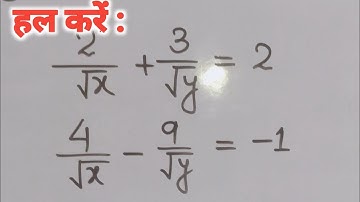 हल करें :
2/√x + 3/√y = 2
4/√x - 9/√y = -1